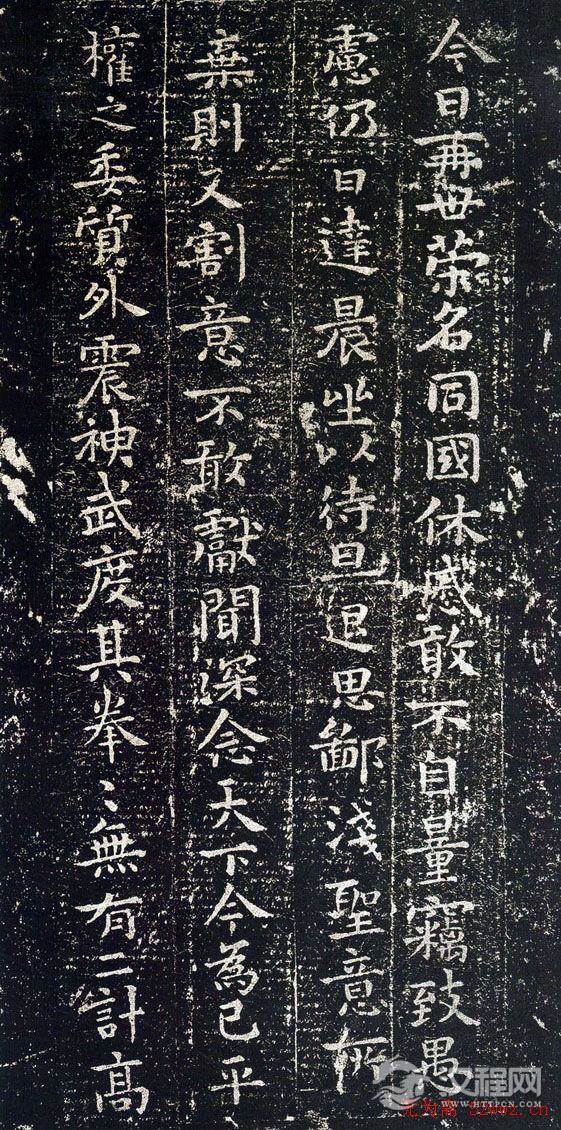 今日再世荣名同國休慼敢不自量竊致愚
慮仍日達晨坐以待旦退思鄙淺聖意所
棄則又割意不敢獻聞深念天下今為已平
權之委質外震神武度其拳〻無有二計高
文程网
WWW.HTTPCN.COM